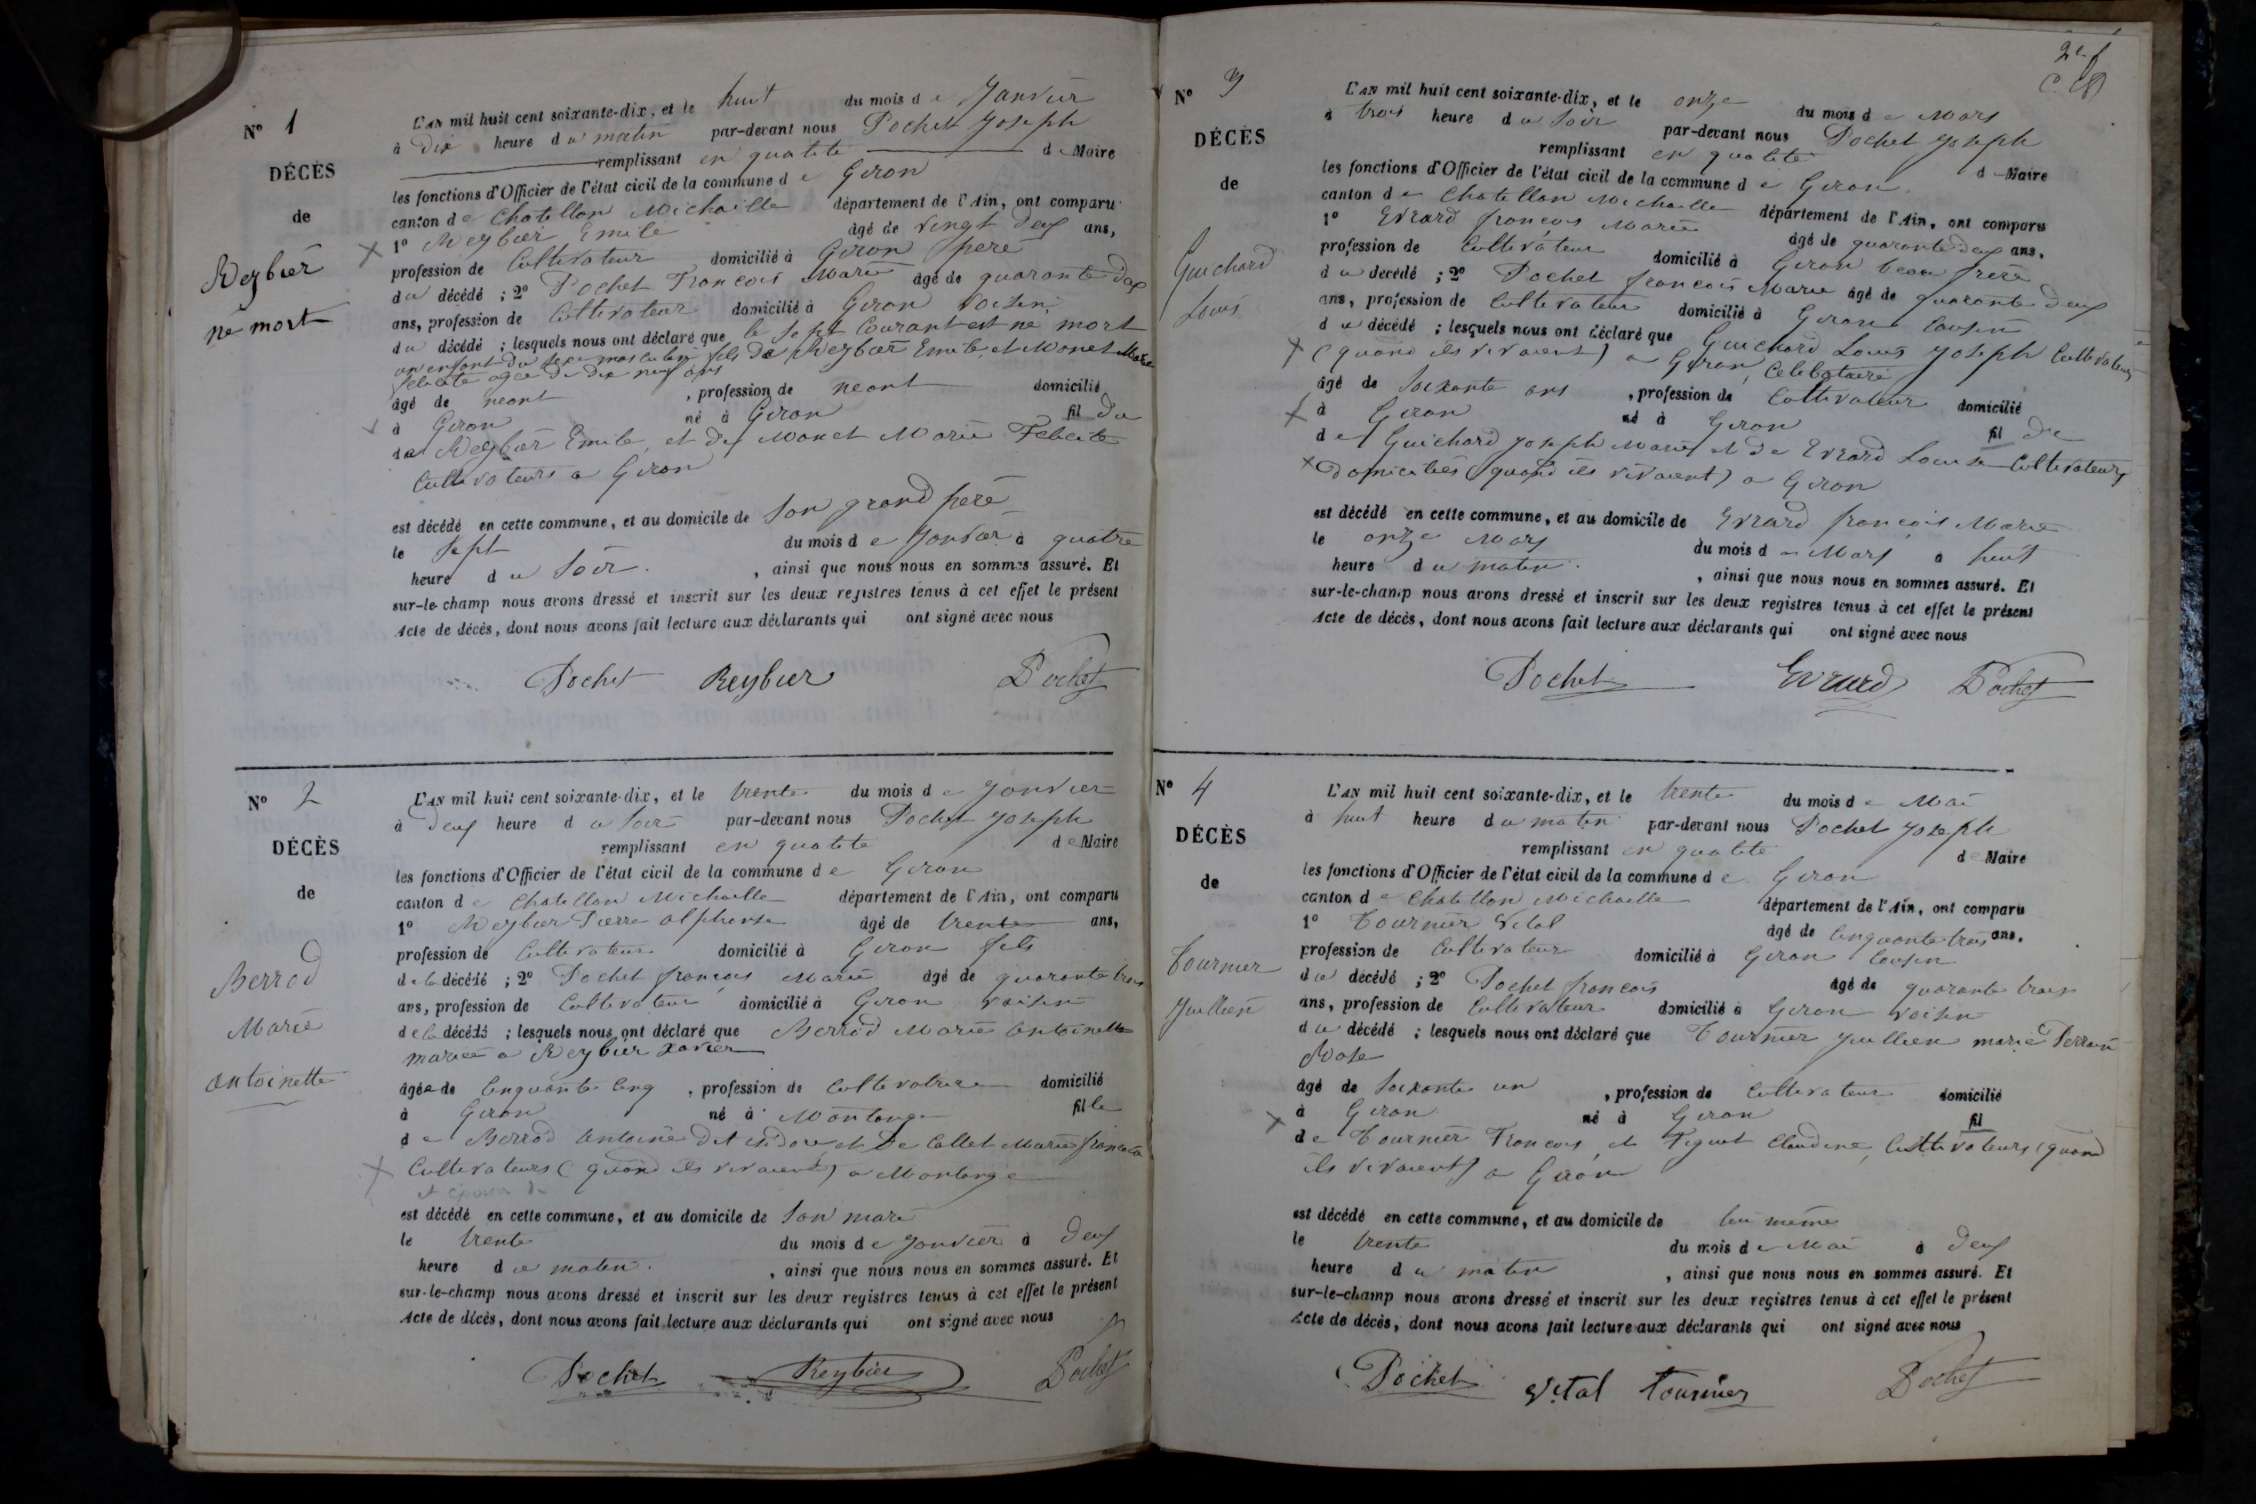 N° 1
DÉCÈS
de
Reybier
né mort
L'AN mil huit cent soixante-dix, et le huit du mois de Janvier
à dix heure du matin par-devant nous Pochet Joseph
remplissant en qualité de Maire
les fonctions d'Officier de l'état civil de la commune de Giron
canton de Chatillon Michaille département de l'Ain, ont comparu
1° Reybier Emile âgé de vingt deux ans,
profession de Cultivateur domicilié à Giron père
du décédé ; 2° Pochet François Marie âgé de quarante deux
ans, profession de Cultivateur domicilié à Giron voisin
du décédé ; lesquels nous ont déclaré que le sept Courant est né mort
un enfant du sexe masculin fils de Reybier Emile et Monet Marie
Felicité agée de dix neuf ans
âgé de neant , profession de neant domicilié
à Giron né à Giron fil du
de Reybier Emile et de Monet Marie Felicité
Cultivateurs a Giron
est décédé en cette commune, et au domicile de Son grand père
le sept du mois de Janvier à quatre
heure du Soir , ainsi que nous nous en sommes assuré. Et
sur-le-champ nous avons dressé et inscrit sur les deux registres tenus à cet effet le présent
Acte de décès, dont nous avons fait lecture aux déclarants qui ont signé avec nous
Pochet Reybier Pochet
N° 2
DÉCÈS
de
Berrod
Marie
antoinette
L'AN mil huit cent soixante-dix, et le trente du mois de Janvier
à deux heure du soir par-devant nous Pochet Joseph
remplissant en qualité de Maire
les fonctions d'Officier de l'état civil de la commune de Giron
canton de Chatillon Michaille département de l'Ain, ont comparu
1° Reybier Pierre alphonse âgé de trente ans,
profession de Cultivateur domicilié à Giron fils
de la décédé ; 2° Pochet françois Marie âgé de quarante trois
ans, profession de Cultivateur domicilié à Giron voisin
de la décédé ; lesquels nous ont déclaré que Berrod Marie antoinette
mariée a Reybier Xavier
âgée de Cinquante Cinq , profession de Cultivatrice domicilié
à Giron né à Montange fille
de Berrod Antoine dit isidore et de Collet Marie françoise
Cultivateurs (quand ils vivaient) a Montange
et epouse de
est décédé en cette commune, et au domicile de Son mari
le trente du mois de Janvier à deux
heure du matin , ainsi que nous nous en sommes assuré. Et
sur-le-champ nous avons dressé et inscrit sur les deux registres tenus à cet effet le présent
Acte de décès, dont nous avons fait lecture aux déclarants qui ont signé avec nous
Pochet Reybier Pochet
2e f
N° 3
DÉCÈS
de
Guichard
Louis
L'AN mil huit cent soixante-dix, et le onze du mois de Mars
à trois heure du Soir par-devant nous Pochet Joseph
remplissant en qualité de Maire
les fonctions d'Officier de l'état civil de la commune de Giron
canton de Chatillon Michaille département de l'Ain, ont comparu
1° Evrard françois Marie âgé de quarante deux ans,
profession de Cultivateur domicilié à Giron beau frère
du décédé ; 2° Pochet françois Marie âgé de quarante deux
ans, profession de Cultivateur domicilié à Giron Cousin
du décédé ; lesquels nous ont déclaré que Guichard Louis Joseph Cultivateur
(quand ils vivaient) a Giron, Célibataire
âgé de Soixante ans , profession de Cultivateur domicilié
à Giron né à Giron fil de
de Guichard Joseph Marie et de Evrard Louise Cultivateurs
domiciliés (quand ils vivaient) a Giron
est décédé en cette commune, et au domicile de Evrard françois Marie
le onze Mars du mois de Mars à huit
heure du matin , ainsi que nous nous en sommes assuré. Et
sur-le-champ nous avons dressé et inscrit sur les deux registres tenus à cet effet le présent
Acte de décès, dont nous avons fait lecture aux déclarants qui ont signé avec nous
Pochet Evrard Pochet
N° 4
DÉCÈS
de
Tournier
Jullien
L'AN mil huit cent soixante-dix, et le trente du mois de Mai
à huit heure du matin par-devant nous Pochet Joseph
remplissant en qualité de Maire
les fonctions d'Officier de l'état civil de la commune de Giron
canton de Chatillon Michaille département de l'Ain, ont comparu
1° Tournier Vital âgé de Cinquante trois ans,
profession de Cultivateur domicilié à Giron Cousin
du décédé ; 2° Pochet françois âgé de quarante trois
ans, profession de Cultivateur domicilié à Giron voisin
du décédé ; lesquels nous ont déclaré que Tournier Jullien marié Perrain
Rose
âgé de Soixante un , profession de Cultivateur domicilié
à Giron né à Giron fil
de Tournier François et Figuet Claudine, Cultivateurs (quand
ils vivaient) a Giron
est décédé en cette commune, et au domicile de lui même
le trente du mois de Mai à deux
heure du matin , ainsi que nous nous en sommes assuré. Et
sur-le-champ nous avons dressé et inscrit sur les deux registres tenus à cet effet le présent
Acte de décès, dont nous avons fait lecture aux déclarants qui ont signé avec nous
Pochet Vital tournier Pochet